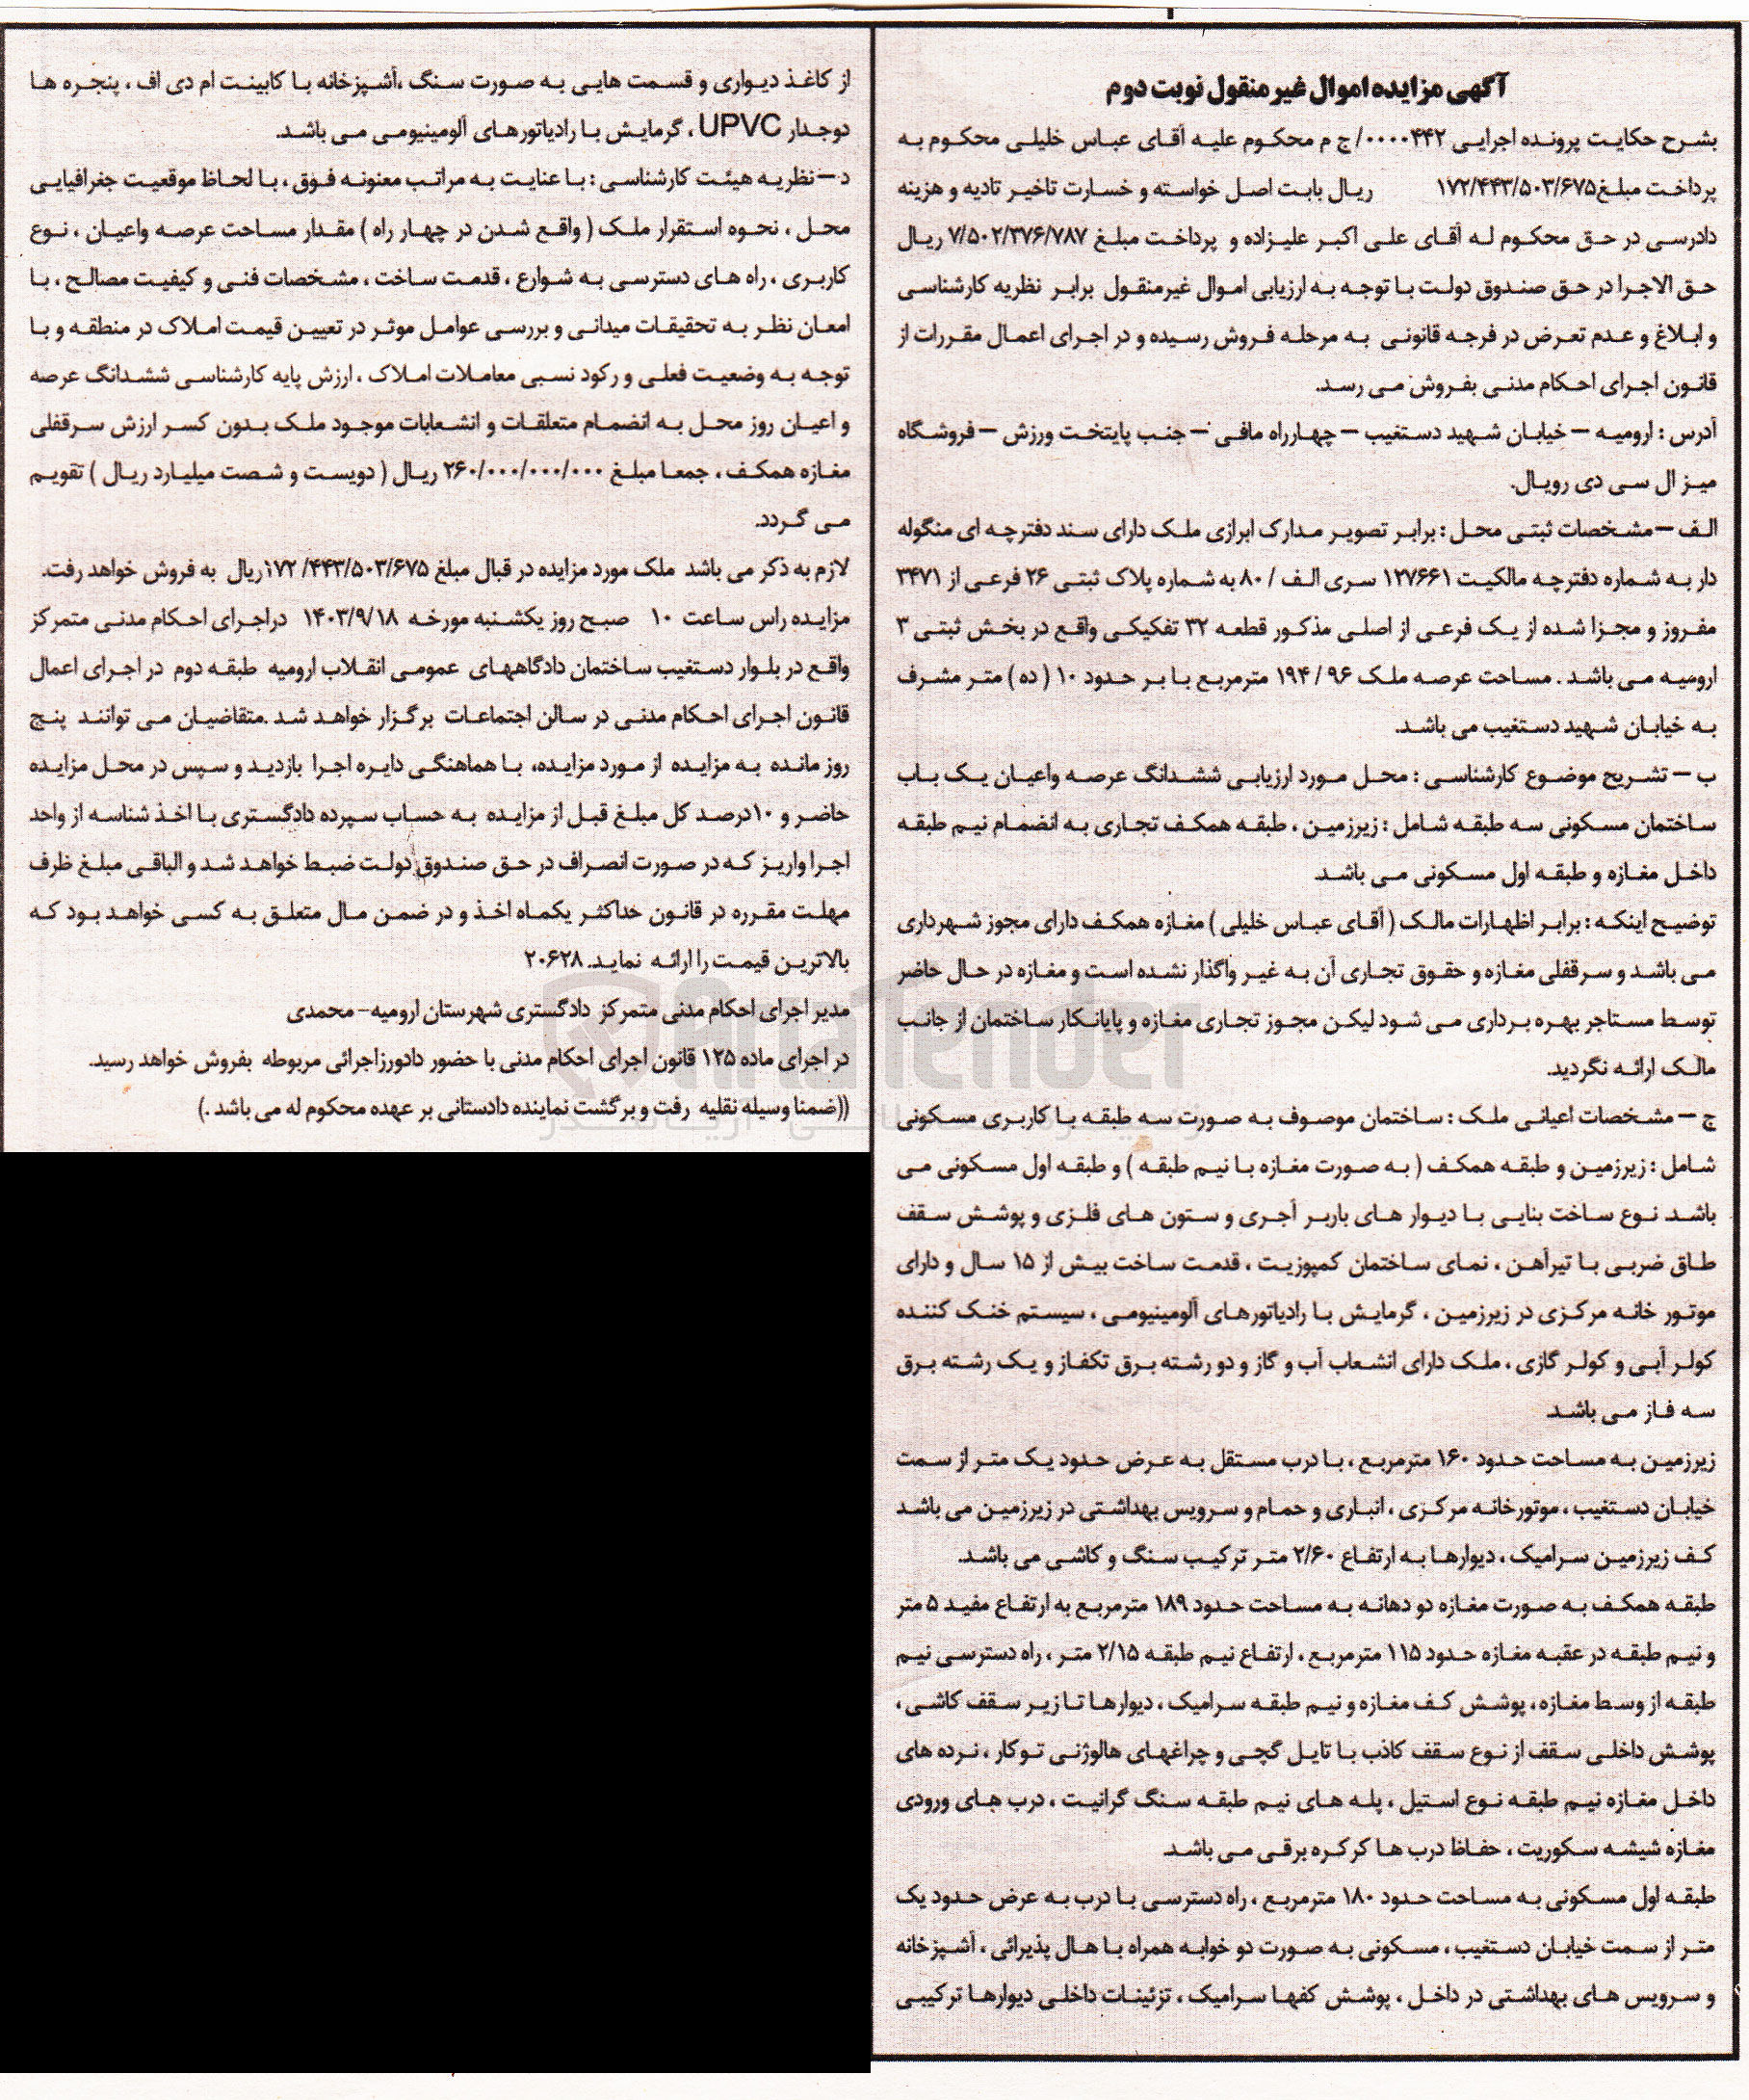 آگهی مزایده اموال غیر منقول نوبت دوم
بشرح حکایت پرونده اجرایی ۰۰۰۰۴۴۲/ ج م محکوم علیه آقای عباس خلیلی محکوم به
پرداخت مبلغ۱۷۲/۴۴۳/۵۰۳/۶۷۵ ریال بابت اصل خواسته و خسارت تاخیر تادیه و هزینه
دادرسی در حق محکوم له آقای علی اکبر علیزاده و پرداخت مبلغ ۷/۵۰۲/۳۷۶/۷۸۷ ریال
حق الاجرا در حق صندوق دولت با توجه به ارزیابی اموال غیرمنقول برابر نظریه کارشناسی
و ابلاغ و عدم تعرض در فرجه قانونی به مرحله فروش رسیده و در اجرای اعمال مقررات از
قانون اجرای احکام مدنی بفروش می رسد.
آدرس : ارومیه – خیابان شهید دستغیب – چهارراه مافی – جنب پایتخت ورزش – فروشگاه
میز ال سی دی رویال.
الف – مشخصات ثبتی محل : برابر تصویر مدارک ابرازی ملک دارای سند دفترچه ای منگوله
دار به شماره دفترچه مالکیت ۱۲۷۶۶۱ سری الف / ۸۰ به شماره پلاک ثبتی ۲۶ فرعی از ۳۴۷۱
مفروز و مجزا شده از یک فرعی از اصلی مذکور قطعه ۳۲ تفکیکی واقع در بخش ثبتی ۳
ارومیه می باشد . مساحت عرصه ملک ۹۶ / ۱۹۴ مترمربع با بر حدود ۱۰ ( ده ) متر مشرف
به خیابان شهید دستغیب می باشد.
ب – تشریح موضوع کارشناسی : محل مورد ارزیابی ششدانگ عرصه واعیان یک باب
ساختمان مسکونی سه طبقه شامل : زیرزمین ، طبقه همکف تجاری به انضمام نیم طبقه
داخل مغازه و طبقه اول مسکونی می باشد.
توضیح اینکه : برابر اظهارات مالک ( آقای عباس خلیلی ) مغازه همکف دارای مجوز شهرداری
می باشد و سرقفلی مغازه و حقوق تجاری آن به غیر واگذار نشده است و مغازه در حال حاضر
توسط مستاجر بهره برداری می شود لیکن مجوز تجاری مغازه و پایانکار ساختمان از جانب
مالک ارائه نگردید.
ج – مشخصات اعیانی ملک : ساختمان موصوف به صورت سه طبقه با کاربری مسکونی
شامل : زیرزمین و طبقه همکف ( به صورت مغازه با نیم طبقه ) و طبقه اول مسکونی می
باشد. نوع ساخت بنایی با دیوار های باربر آجری و ستون های فلزی و پوشش سقف
طاق ضربی با تیرآهن ، نمای ساختمان کمپوزیت ، قدمت ساخت بیش از ۱۵ سال و دارای
موتور خانه مرکزی در زیرزمین ، گرمایش با رادیاتورهای آلومینیومی ، سیستم خنک کننده
کولر آبی و کولر گازی ، ملک دارای انشعاب آب و گاز و دو رشته برق تکفاز و یک رشته برق
سه فاز می باشد.
زیرزمین به مساحت حدود ۱۶۰ مترمربع ، با درب مستقل به عرض حدود یک متر از سمت
خیابان دستغیب ، موتورخانه مرکزی ، انباری و حمام و سرویس بهداشتی در زیرزمین می باشد
کف زیرزمین سرامیک ، دیوارها به ارتفاع ۲/۶۰ متر ترکیب سنگ و کاشی می باشد.
طبقه همکف به صورت مغازه دو دهانه به مساحت حدود ۱۸۹ مترمربع به ارتفاع مفید ۵ متر
و نیم طبقه در عقبه مغازه حدود ۱۱۵ مترمربع ، ارتفاع نیم طبقه ۲/۱۵ متر ، راه دسترسی نیم
طبقه از وسط مغازه ، پوشش کف مغازه و نیم طبقه سرامیک ، دیوارها تا زیر سقف کاشی ،
پوشش داخلی سقف از نوع سقف کاذب با تایل گچی و چراغهای هالوژنی توکار ، نرده های
داخل مغازه نیم طبقه نوع استیل ، پله های نیم طبقه سنگ گرانیت ، درب های ورودی
مغازه شیشه سکوریت ، حفاظ درب ها کرکره برقی می باشد.
طبقه اول مسکونی به مساحت حدود ۱۸۰ مترمربع ، راه دسترسی با درب به عرض حدود یک
متر از سمت خیابان دستغیب ، مسکونی به صورت دو خوابه همراه با هال پذیرائی ، آشپزخانه
و سرویس های بهداشتی در داخل ، پوشش کفها سرامیک ، تزئینات داخلی دیوارها ترکیبی
از کاغذ دیواری و قسمت هایی به صورت سنگ ،آشپزخانه با کابینت ام دی اف ، پنجره ها
دوجدار UPVC ، گرمایش با رادیاتورهای آلومینیومی می باشد.
د – نظریه هیئت کارشناسی : با عنایت به مراتب معنونه فوق ، با لحاظ موقعیت جغرافیایی
محل ، نحوه استقرار ملک ( واقع شدن در چهار راه ) مقدار مساحت عرصه واعیان ، نوع
کاربری ، راه های دسترسی به شوارع ، قدمت ساخت ، مشخصات فنی و کیفیت مصالح ، با
امعان نظر به تحقیقات میدانی و بررسی عوامل موثر در تعیین قیمت املاک در منطقه و با
توجه به وضعیت فعلی و رکود نسبی معاملات املاک ، ارزش پایه کارشناسی ششدانگ عرصه
و اعیان روز محل به انضمام متعلقات و انشعابات موجود ملک بدون کسر ارزش سرقفلی
مغازه همکف ، جمعا مبلغ ۲۶۰/۰۰۰/۰۰۰/۰۰۰ ریال ( دویست و شصت میلیارد ریال ) تقویم
می گردد.
لازم به ذکر می باشد ملک مورد مزایده در قبال مبلغ ۱۷۲/ ۴۴۳/۵۰۳/۶۷۵ریال به فروش خواهد رفت.
مزایده راس ساعت ۱۰ صبح روز یکشنبه مورخه ۱۴۰۳/۹/۱۸ دراجرای احکام مدنی متمرکز
واقع در بلوار دستغیب ساختمان دادگاههای عمومی انقلاب ارومیه طبقه دوم در اجرای اعمال
قانون اجرای احکام مدنی در سالن اجتماعات برگزار خواهد شد .متقاضیان می توانند پنج
روز مانده به مزایده از مورد مزایده، با هماهنگی دایره اجرا بازدید و سپس در محل مزایده
حاضر و ۱۰درصد کل مبلغ قبل از مزایده به حساب سپرده دادگستری با اخذ شناسه از واحد
اجرا واریز که در صورت انصراف در حق صندوق دولت ضبط خواهد شد و الباقی مبلغ ظرف
مهلت مقرره در قانون حداکثر یکماه اخذ و در ضمن مال متعلق به کسی خواهد بود که
بالاترین قیمت را ارائه نماید. ۲۰۶۲۸
مدیر اجرای احکام مدنی متمرکز دادگستری شهرستان ارومیه- محمدی
در اجرای ماده ۱۲۵ قانون اجرای احکام مدنی با حضور دادورزاجرائی مربوطه بفروش خواهد رسید.
((ضمنا وسیله نقلیه رفت و برگشت نماینده دادستانی بر عهده محکوم له می باشد .)
AriaTender